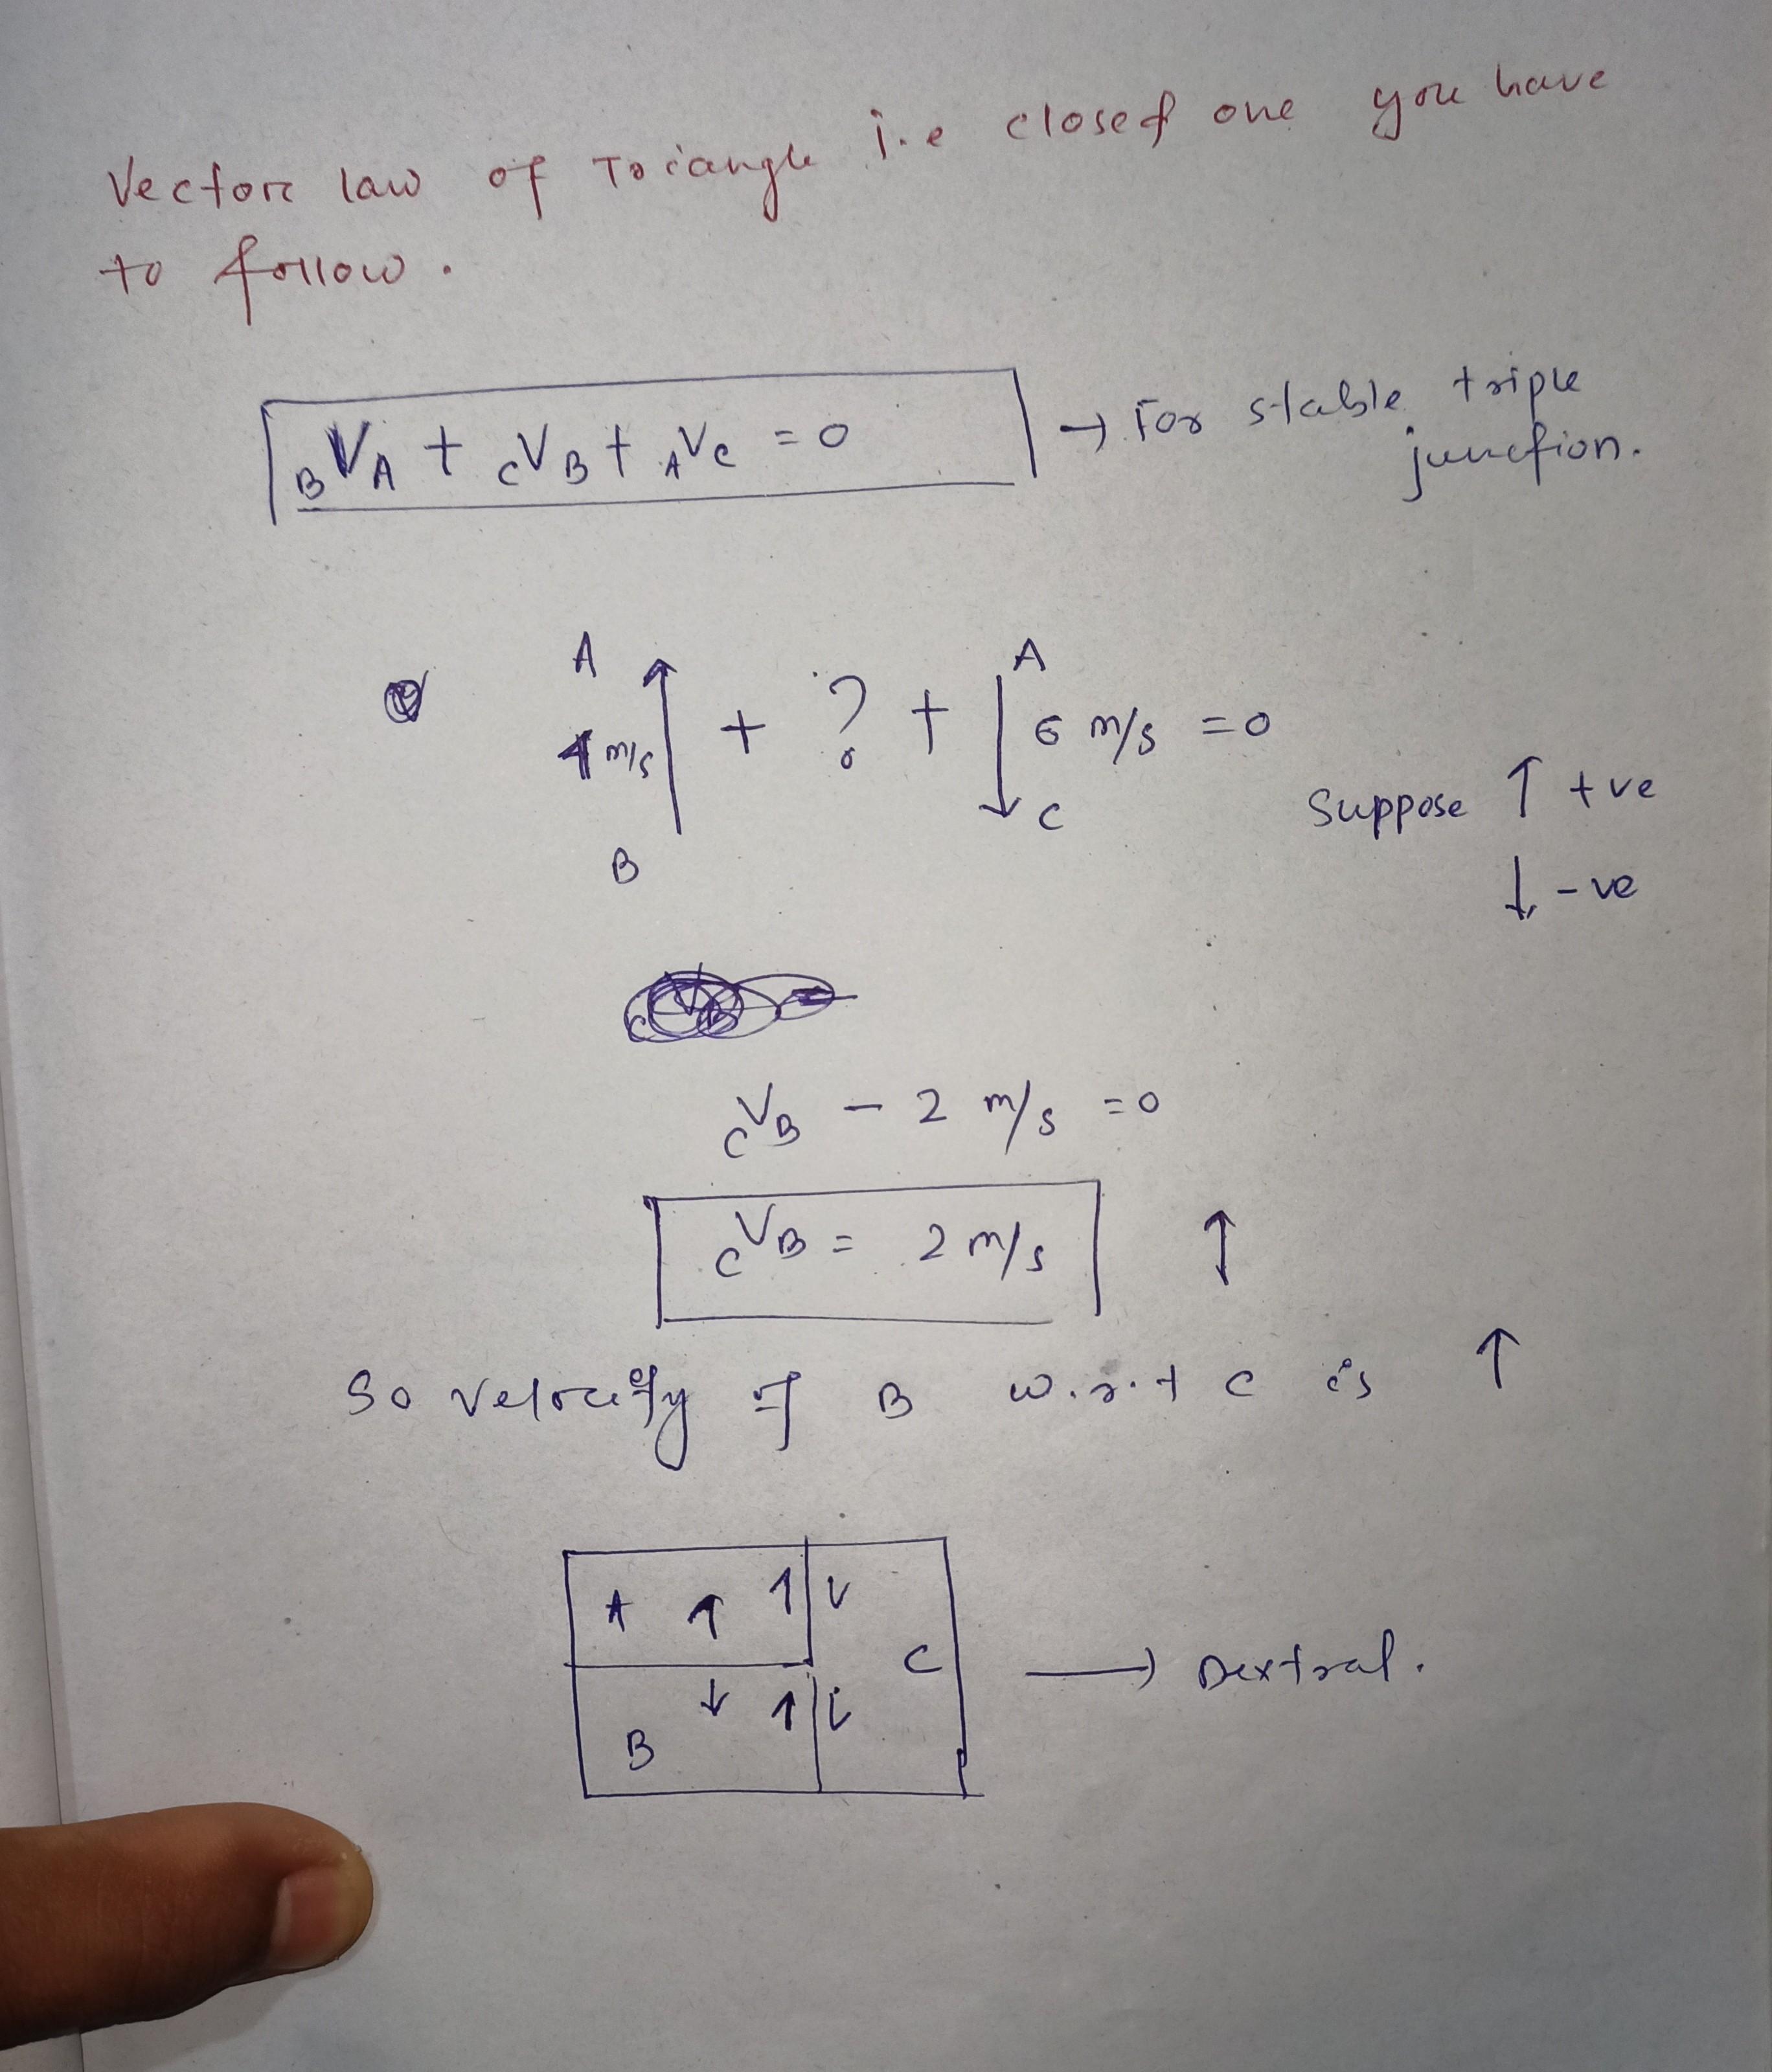 Vector law of Triangle i.e closed one you have
to follow.
BVA + CVB + AVC = 0 → For stable triple
junction.
A A
4 m/s ↑ + ? + ↓ 6 m/s = 0
B C
Suppose ↑ +ve
↓ -ve
CVB - 2 m/s = 0
CVB = 2 m/s ↑
So velocity of B w.r.t C is ↑
A ↑ ↑
C → Dextral.
↓ ↑
B